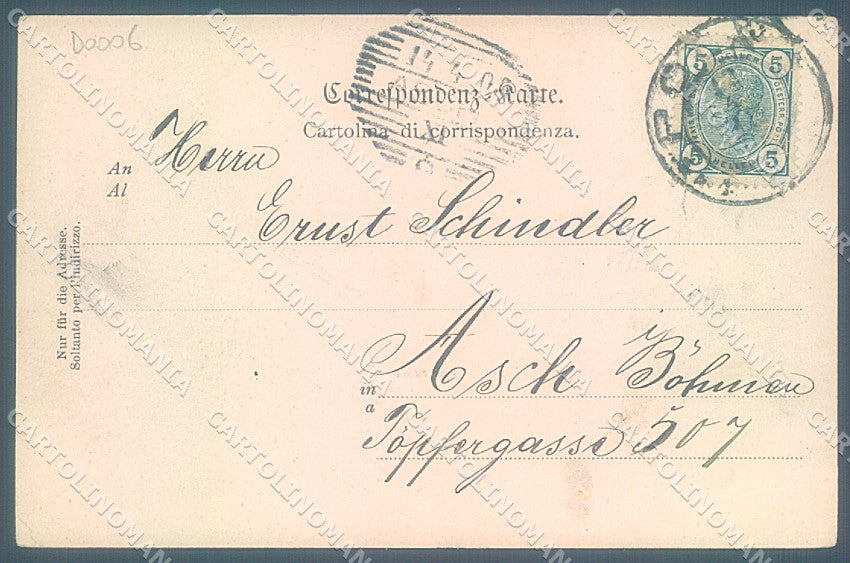 D0006
Correspondenz-Karte.
Cartolina di corrispondenza.
An
Al
Herrn
Ernst Schindler
in
a
Asch Böhmen
Töpfergasse 507
Nur für die Adresse.
Soltanto per l'indirizzo.
5 5
5 5
HELLER
CARTOLINOMANIA